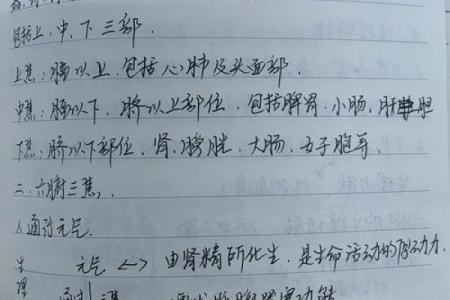 包括上、中、下三部.
上焦:膈以上.包括心肺及头面部.
中焦:膈以下、脐以上部位、包括脾胃、小肠、肝胆
下焦:脐以下部位、肾、膀胱、大肠、女子胞等.
二、六腑三焦.
1.通行元气.
生 元气 <-> 由肾精所化生.是生命活动的原动力.
理